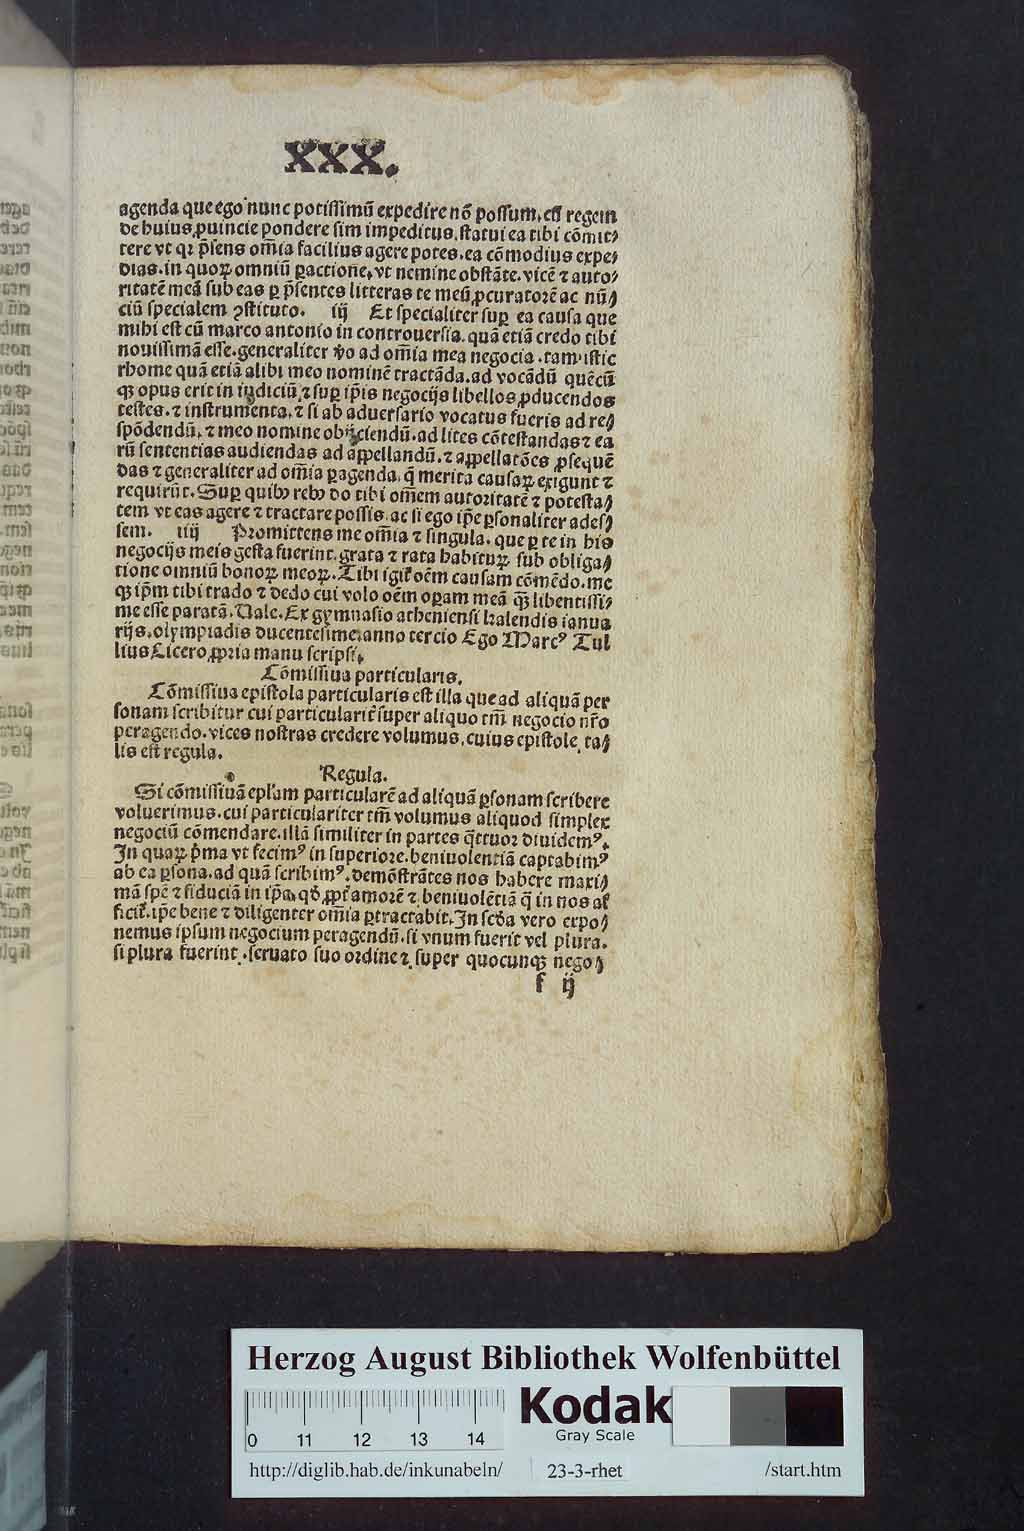 XXX.
agenda que ego nunc potissimū expedire nō possum, cū regem
de huius ꝓuincie pondere sim impeditus, statui ea tibi cōmit⸗
tere vt qꝛ p̄sens om̄ia facilius agere potes. ea cōmodius expe⸗
dias. in quoꝝ omniū ꝑactione, vt nemine obstāte. vicē ⁊ auto⸗
ritatē meā sub eas ꝑ p̄sentes litteras te meū ꝓcuratorē ac nū⸗
ciū specialem ꝯstituto. iij Et specialiter suꝑ ea causa que
mihi est cū marco antonio in controuersia. quā etiā credo tibi
nouissimā esse. generaliter v̾o ad om̄ia mea negocia. tam istic
rhome quā etiā alibi meo nominē tractāda. ad vocādū quēcū
qꝫ opus erit in iudiciū, ⁊ suꝑ ip̄is negocijs libellos ꝓducendos
testes. ⁊ instrumenta, ⁊ si ab aduersario vocatus fueris ad re⸗
spōdendū, ⁊ meo nomine obijciendū. ad lites cōtestandas ⁊ ea
rū sententias audiendas ad appellandū. ⁊ appellatōes ꝓsequē
das ⁊ generaliter ad om̄ia ꝑagenda, q̄ merita causaꝝ exigunt ⁊
requirūt. Suꝑ quibꝰ rebꝰ do tibi om̄em autoritatē ⁊ potesta⸗
tem vt eas agere ⁊ tractare possis. ac si ego ip̄e ꝑsonaliter ades⸗
sem. iiij Promittens me om̄ia ⁊ singula. que ꝑ te in his
negocijs meis gesta fuerint, grata ⁊ rata habituꝝ sub obliga⸗
tione omniū bonoꝝ meoꝝ. Tibi igit̄ oēm causam cōmēdo. me
qꝫ ip̄m tibi trado ⁊ dedo cui volo oēm oꝑam meā qꝫ̄ libentissi⸗
me esse paratā. Vale. Ex gymnasio atheniensi kalendis ianua
rijs. olympiadis ducentesime. anno tercio Ego Marcꝰ Tul
lius Cicero ꝓpria manu scripsi.
Cōmissiua particularis.
Cōmissiua epistola particularis est illa que ad aliquā per
sonam scribitur cui particularit̄ super aliquo tm̄ negocio nr̄o
peragendo. vices nostras credere volumus, cuius epistole ta⸗
lis est regula.
Regula.
Si cōmissiuā epl̄am particularē ad aliquā ꝑsonam scribere
voluerimus. cui particulariter tm̄ volumus aliquod simplex
negociū cōmendare. illā similiter in partes q̄ttuor diuidemꝰ.
In quaꝝ p̄ma vt fecimꝰ in superiore. beniuolentiā captabimꝰ
ab ea ꝑsona. ad quā scribimꝰ. demōstrātes nos habere maxi⸗
mā spē ⁊ fiduciā in ip̄a, qđ ꝓpt̄ amorē ⁊ beniuolētiā q̄ in nos af
ficit̄. ip̄e bene ⁊ diligenter om̄ia ꝑtractabit. In scđa vero expo⸗
nemus ipsum negocium peragendū. si vnum fuerit vel plura.
si plura fuerint. seruato suo ordine ⁊ super quocunqꝫ nego⸗
f ij
Herzog August Bibliothek Wolfenbüttel
0 11 12 13 14
Kodak
Gray Scale
http://diglib.hab.de/inkunabeln/ 23-3-rhet /start.htm